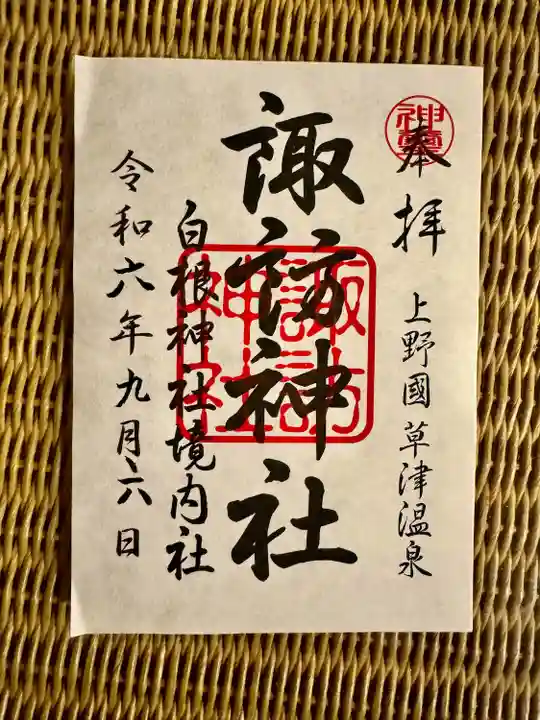 奉拝
上野國草津温泉
諏訪神社
諏訪神社
白根神社境内社
令和六年九月六日